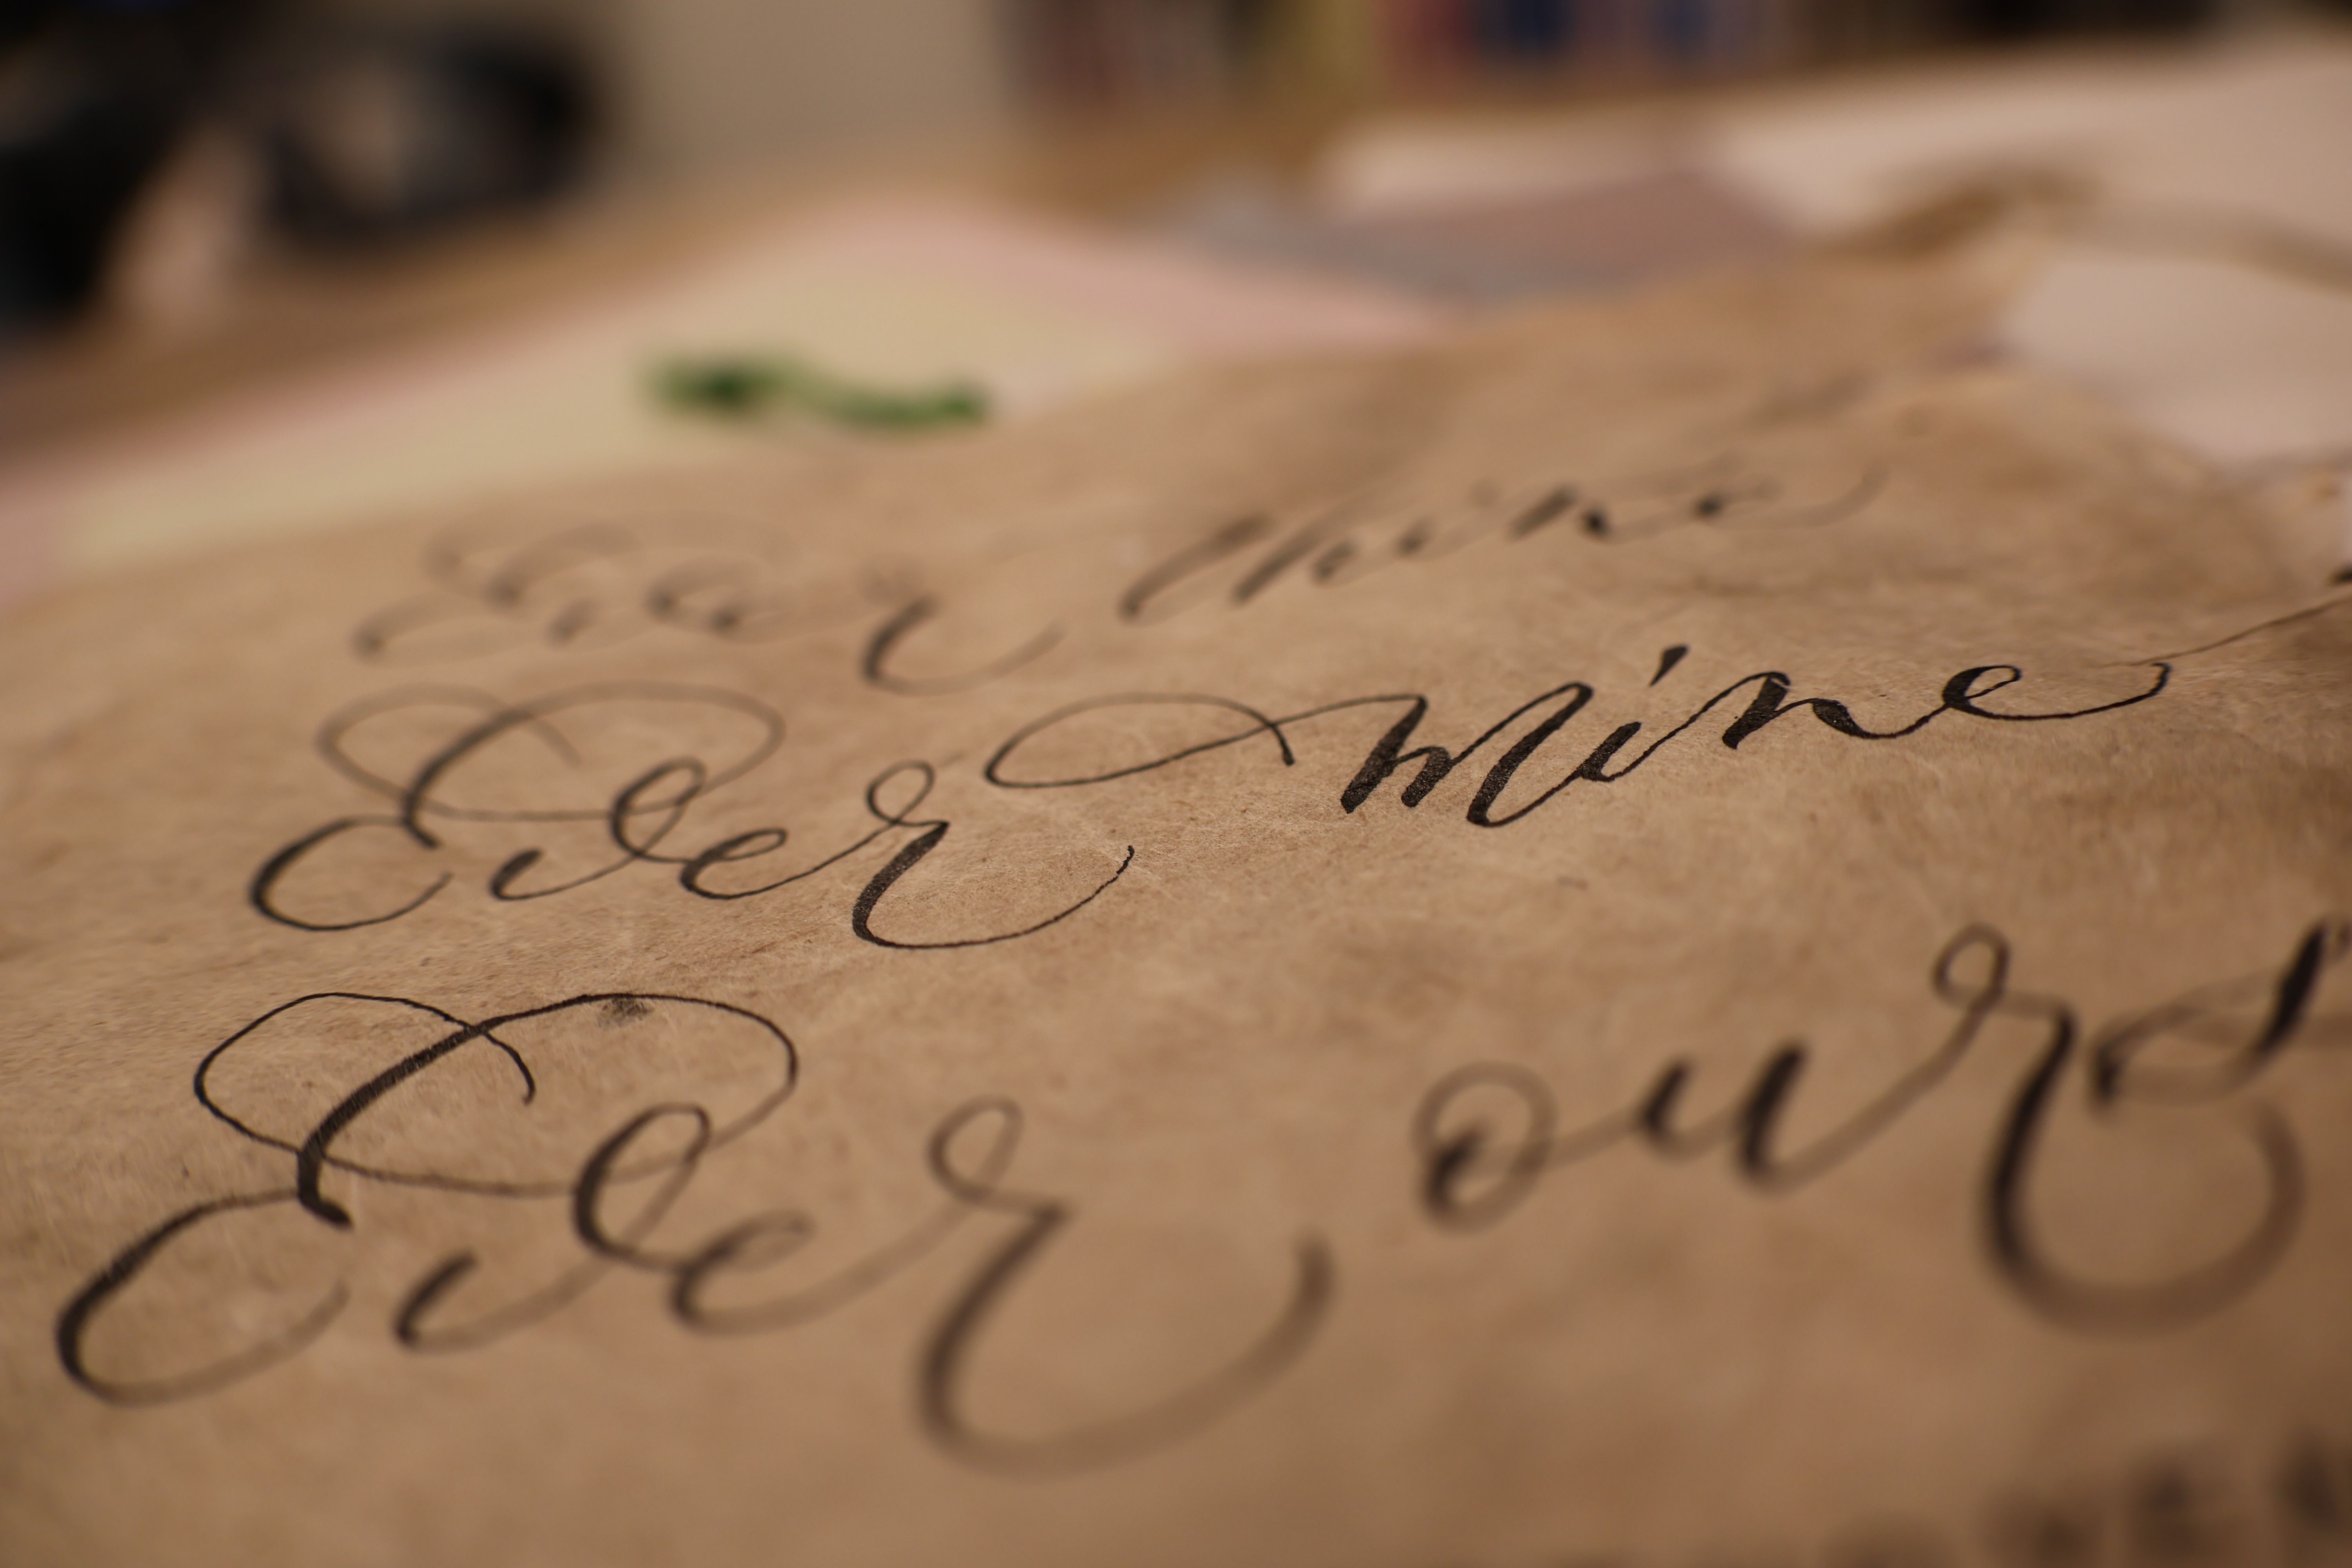 Ever thine
Ever Mine
Ever ours